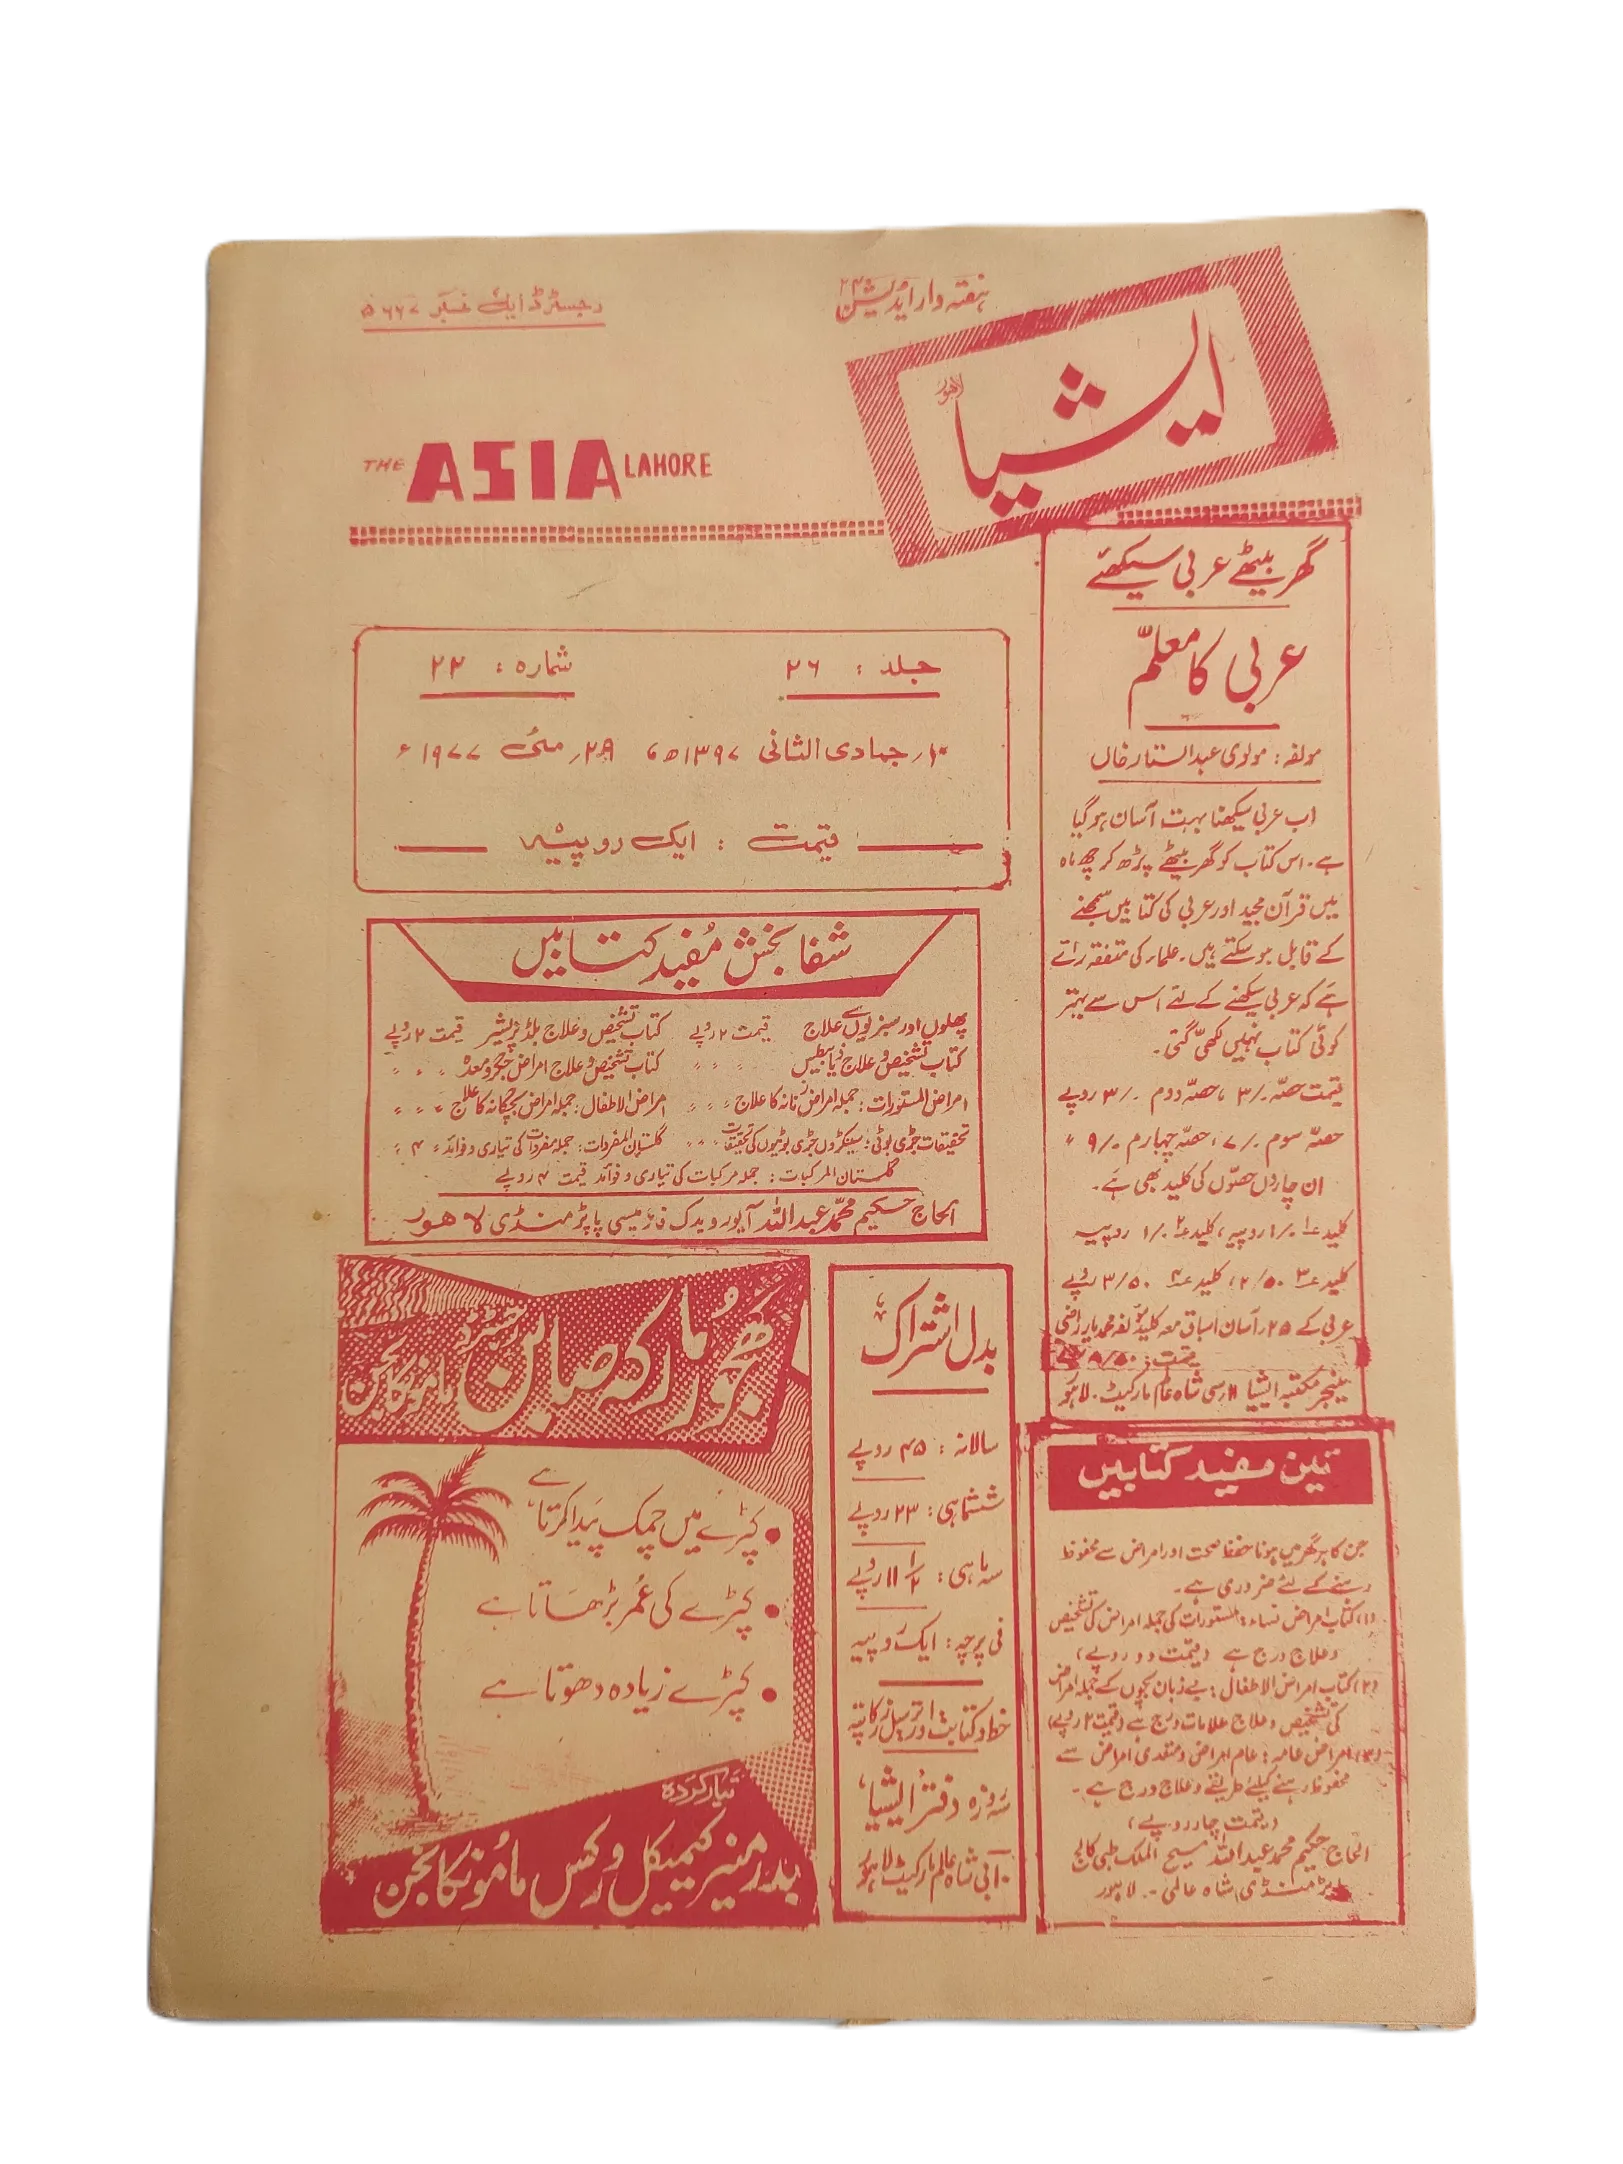 ہفتہ وار ایڈیشن ۲۴
رجسٹرڈ ایل نمبر ۶۶۷۰
ایشیا
لاہور
THE ASIA LAHORE
جلد : ۲۶ شمارہ : ۲۲
۱۰؍ جمادی الثانی ۱۳۹۷ھ ۲۸؍ مئی ۱۹۷۷ء
قیمت : ایک روپیہ
گھر بیٹھے عربی سیکھئے
عربی کا معلّم
مولفہ : مولوی عبدالستار خاں
اب عربی سیکھنا بہت آسان ہو گیا
ہے۔ اس کتاب کو گھر بیٹھے پڑھ کر چھ ماہ
میں قرآن مجید اور عربی کی کتابیں سمجھنے
کے قابل ہو سکتے ہیں۔ علماء کی متفقہ رائے
ہے کہ عربی سیکھنے کے لئے اس سے بہتر
کوئی کتاب نہیں لکھی گئی۔
قیمت حصہ ۳/۰، حصہ دوم ۳/۰ روپے
حصہ سوم ۷/۰، حصہ چہارم ۹/۰ 〃
ان چاروں حصوں کی کلید بھی ہے۔
کلید ۱؎ ۱/۰ روپیہ، کلید ۲؎ ۱/۰ روپیہ
کلید ۳؎ ۲/۵۰، کلید ۴؎ ۳/۵۰ روپے
عربی کے ۲۵؍ آسان اسباق معہ کلید مؤلفہ محمد یار راضی
قیمت : ۹/۵۰
مینجر مکتبہ ایشیا ۱۱؍سی شاہ عالم مارکیٹ۔ لاہور
شفا بخش مُفید کتابیں
پھلوں اور سبزیوں سے علاج قیمت ۲ روپے کتاب تشخیص و علاج بلڈ پریشر قیمت ۲ روپے
کتاب تشخیص و علاج ذیابیطیس 〃 〃 〃 کتاب تشخیص و علاج امراض جگر و معدہ 〃 〃 〃
امراض المستورات : جملہ امراض زنانہ کا علاج 〃 〃 〃 امراض الاطفال : جملہ امراض بچگانہ کا علاج 〃 〃 〃
تحقیقات جڑی بوٹی : سینکڑوں جڑی بوٹیوں کی تحقیقات 〃 〃 〃 گلستان المفردات : جملہ مفردات کی تیاری و فوائد 〃 ۴ 〃
گلستان المرکبات : جملہ مرکبات کی تیاری و فوائد قیمت ۴ روپے
الحاج حکیم محمّد عبداللہ آیورویدک فارمیسی پاپڑ منڈی لاھور
کھجور مارکہ صابن
ماموں کانجن
کپڑے میں چمک پیدا کرتا ہے
کپڑے کی عُمر بڑھاتا ہے
کپڑے زیادہ دھوتا ہے
تیار کردہ
بدر منیر کیمیکل ورکس ماموں کانجن
بدل اشتراک
سالانہ : ۴۵ روپے
ششماہی : ۲۳ روپے
سہ ماہی : ۱۱ ۱/۲ روپے
فی پرچہ : ایک روپیہ
خط و کتابت اور ترسیل زر کا پتہ
سہ روزہ دفتر ‘ایشیا’
۱۰۔ اے شاہ عالم مارکیٹ لاہور
تین مفید کتابیں
جن کا ہر گھر میں ہونا حفظ صحت اور امراض سے محفوظ
رہنے کے لئے ضروری ہے۔
(۱) کتاب امراض نساء : مستورات کی جملہ امراض کی تشخیص
وعلاج درج ہے (قیمت دو روپے)
(۲) کتاب امراض الاطفال : بے زبان بچوں کے جملہ امراض
کی تشخیص و علاج علامات درج ہے (قیمت ۲ روپے)
(۳) امراض عامہ : عام امراض و متعدی امراض سے
محفوظ رہنے کیلئے طریقے و علاج درج ہے۔
(قیمت چار روپے)
الحاج حکیم محمد عبداللہ مسیح الملک طبی کالج
پاپڑ منڈی شاہ عالمی۔ لاہور